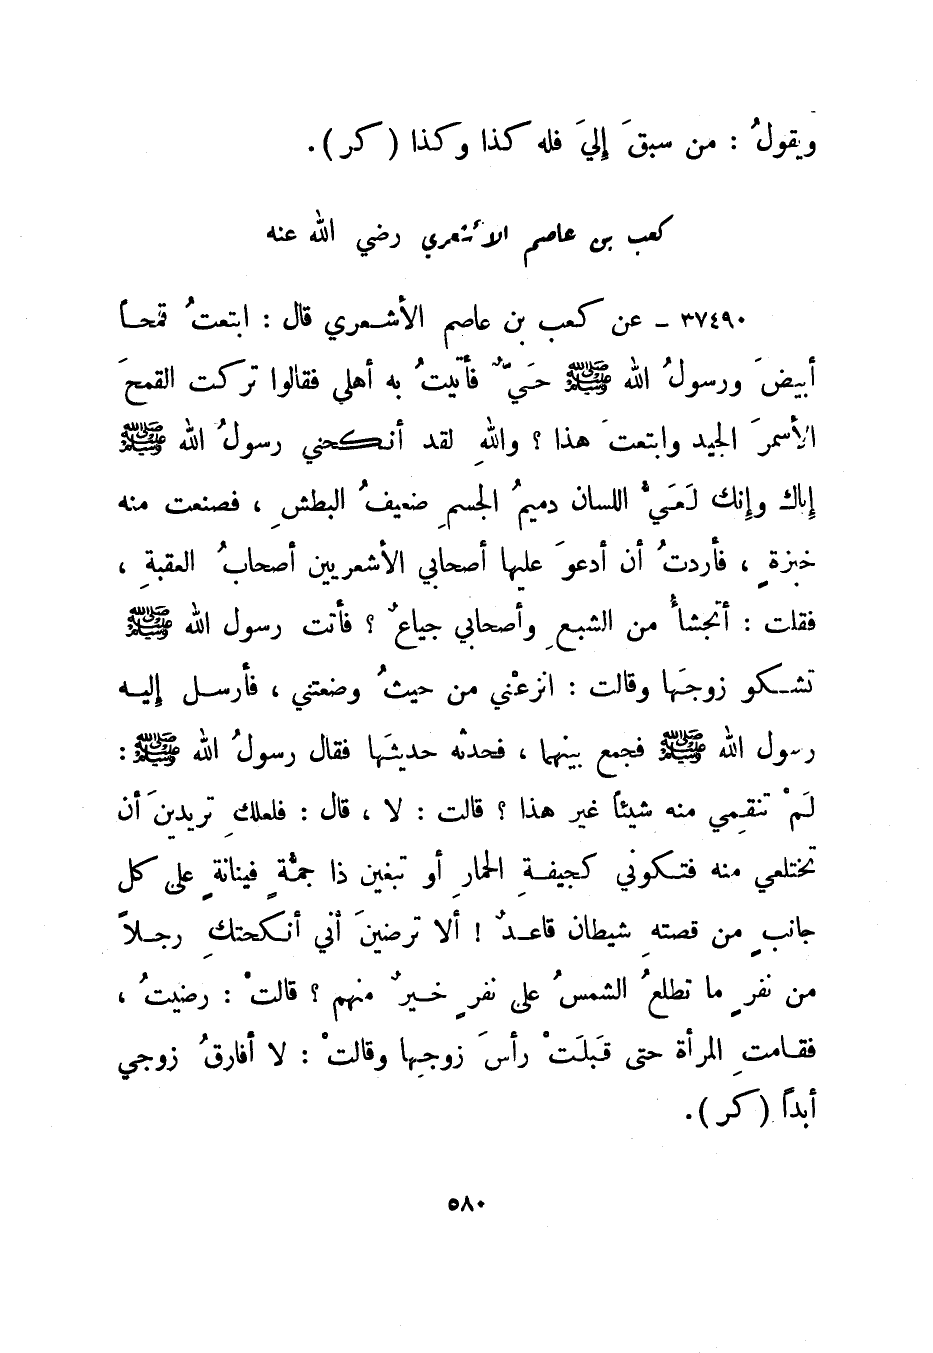 ويقولُ : من سبقَ إليَ فله كذا وكذا ( كر ) .
كعب بن عاصم الأشعري رضي الله عنه
٣٧٤٩٠ – عن كعب بن عاصم الأشعري قال : ابتعتُ قمحاً
أبيضَ ورسولُ الله ﷺ حَيٌّ فأتيتُ به أهلي فقالوا تركت القمحَ
الأسمرَ الجيد وابتعتَ هذا ؟ واللهِ لقد أنكحني رسولُ الله ﷺ
إياك وإنك لَعَيُّ اللسان دميمُ الجسمِ ضعيفُ البطشِ ، فصنعت منه
خبزةٍ ، فأردتُ أن أدعوَ عليها أصحابي الأشعريين أصحابُ العقبةِ ،
فقلت : أتجشأُ من الشبعِ وأصحابي جياعٌ ؟ فأتت رسول الله ﷺ
تشكو زوجَها وقالت : انزعْني من حيثُ وضعتني ، فأرسل إليه
رسول الله ﷺ فجمع بينهما ، فحدثه حديثَها فقال رسولُ الله ﷺ :
لَمْ تنقِمي منه شيئاً غير هذا ؟ قالت : لا ، قال : فلعلكِ تريدينَ أن
تختلعي منه فتكوني كجيفةِ الحمارِ أو تبغين ذا جمَّةٍ فينانةٍ على كل
جانبٍ من قصتهِ شيطان قاعدٌ ! ألا ترضينَ أني أنكحتكِ رجلاً
من نفرٍ ما تطلعُ الشمسُ على نفرٍ خيرٌ منهم ؟ قالتْ : رضيتُ ،
فقامتِ المرأة حتى قَبلَتْ رأسَ زوجِها وقالتْ : لا أفارقُ زوجي
أبداً ( كر ) .
٥٨٠